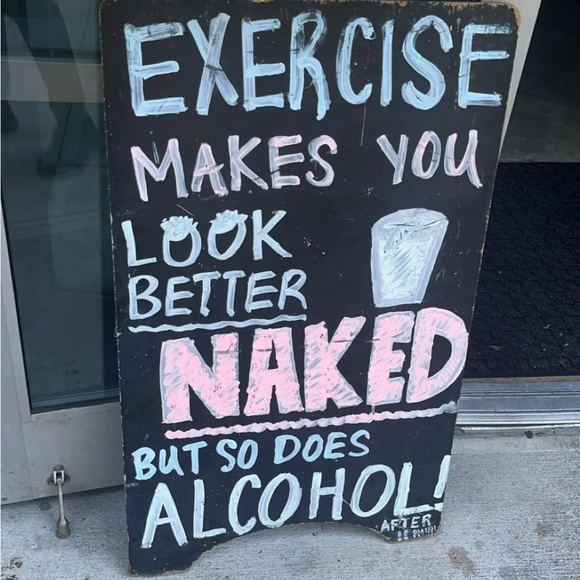 EXERCISE
MAKES YOU
LOOK
BETTER
NAKED
BUT SO DOES
ALCOHOL!
AFTER